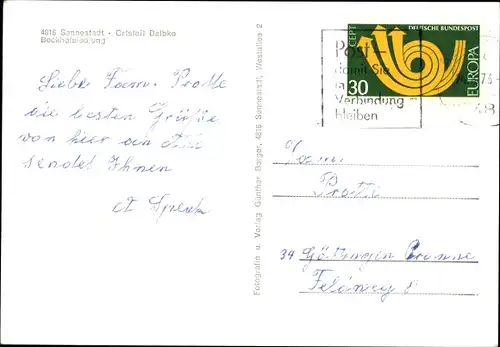 4816 Sennestadt - Ortsteil Dalbke
Bockholsiedlung
Liebe Fam. Protte
die besten Grüße
von hier an
sendet Ihnen
Fotografie u. Verlag Günther Berger, 4816 Sennestadt, Westallee 2
Post –
damit Sie
in
Verbindung
bleiben
CEPT
DEUTSCHE BUNDESPOST
30
EUROPA
Fam.
Protte
34 Göttingen